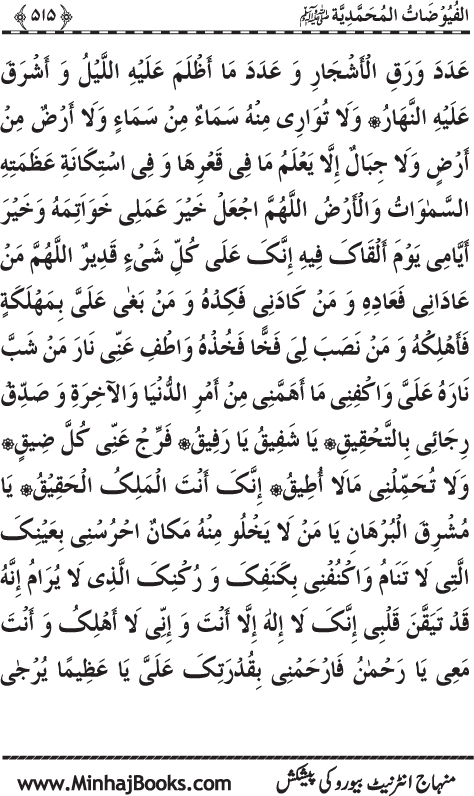 الفُيُوْضَاتُ المُحَمَّدِيَّة ﷺ ﴿۵۱۵﴾
عَدَدَ وَرَقِ الْأَشْجَارِ وَ عَدَدَ مَا أَظْلَمَ عَلَيْهِ اللَّيْلُ وَ أَشْرَقَ
عَلَيْهِ النَّهَارُ، وَلَا تُوَارِى مِنْهُ سَمَاءٌ مِنْ سَمَاءٍ وَلَا أَرْضٌ مِنْ
أَرْضٍ وَلَا جِبَالٌ إِلَّا يَعْلَمُ مَا فِى قَعْرِهَا وَ فِى اسْتِكَانَةِ عَظَمَتِهِ
السَّمٰوَاتُ وَالْأَرْضُ اللّٰهُمَّ اجْعَلْ خَيْرَ عَمَلِى خَوَاتِمَهُ وَخَيْرَ
أَيَّامِى يَوْمَ أَلْقَاكَ فِيهِ إِنَّكَ عَلَى كُلِّ شَىْءٍ قَدِيرٌ اللّٰهُمَّ مَنْ
عَادَانِى فَعَادِهِ وَ مَنْ كَادَنِى فَكِدْهُ وَ مَنْ بَغٰى عَلَىَّ بِمَهْلَكَةٍ
فَأَهْلِكْهُ وَ مَنْ نَصَبَ لِىَ فَخًّا فَخُذْهُ وَاطْفِ عَنِّى نَارَ مَنْ شَبَّ
نَارَهُ عَلَىَّ وَاكْفِنِى مَا أَهَمَّنِى مِنْ أَمْرِ الدُّنْيَا وَالْآخِرَةِ وَ صَدِّقْ
رِجَائِى بِالتَّحْقِيقِ، يَا شَفِيقُ يَا رَفِيقُ، فَرِّجْ عَنِّى كُلَّ ضِيقٍ،
وَلَا تُحَمِّلْنِى مَالَا أُطِيقُ، إِنَّكَ أَنْتَ الْمَلِكُ الْحَقِيْقُ، يَا
مَشْرِقَ الْبُرْهَانِ يَا مَنْ لَا يَخْلُو مِنْهُ مَكَانٌ احْرُسْنِى بِعَيْنِكَ
الَّتِى لَا تَنَامُ وَاكْنُفْنِى بِكَنَفِكَ وَ رُكْنِكَ الَّذِى لَا يُرَامُ إِنَّهُ
قَدْ تَيَقَّنَ قَلْبِى إِنَّكَ لَا إِلٰهَ إِلَّا أَنْتَ وَ إِنِّى لَا أَهْلِكُ وَ أَنْتَ
مَعِى يَا رَحْمٰنُ فَارْحَمْنِى بِقُدْرَتِكَ عَلَىَّ يَا عَظِيمًا يُرْجٰى
منہاج انٹرنیٹ بیورو کی پیشکش www.MinhajBooks.com